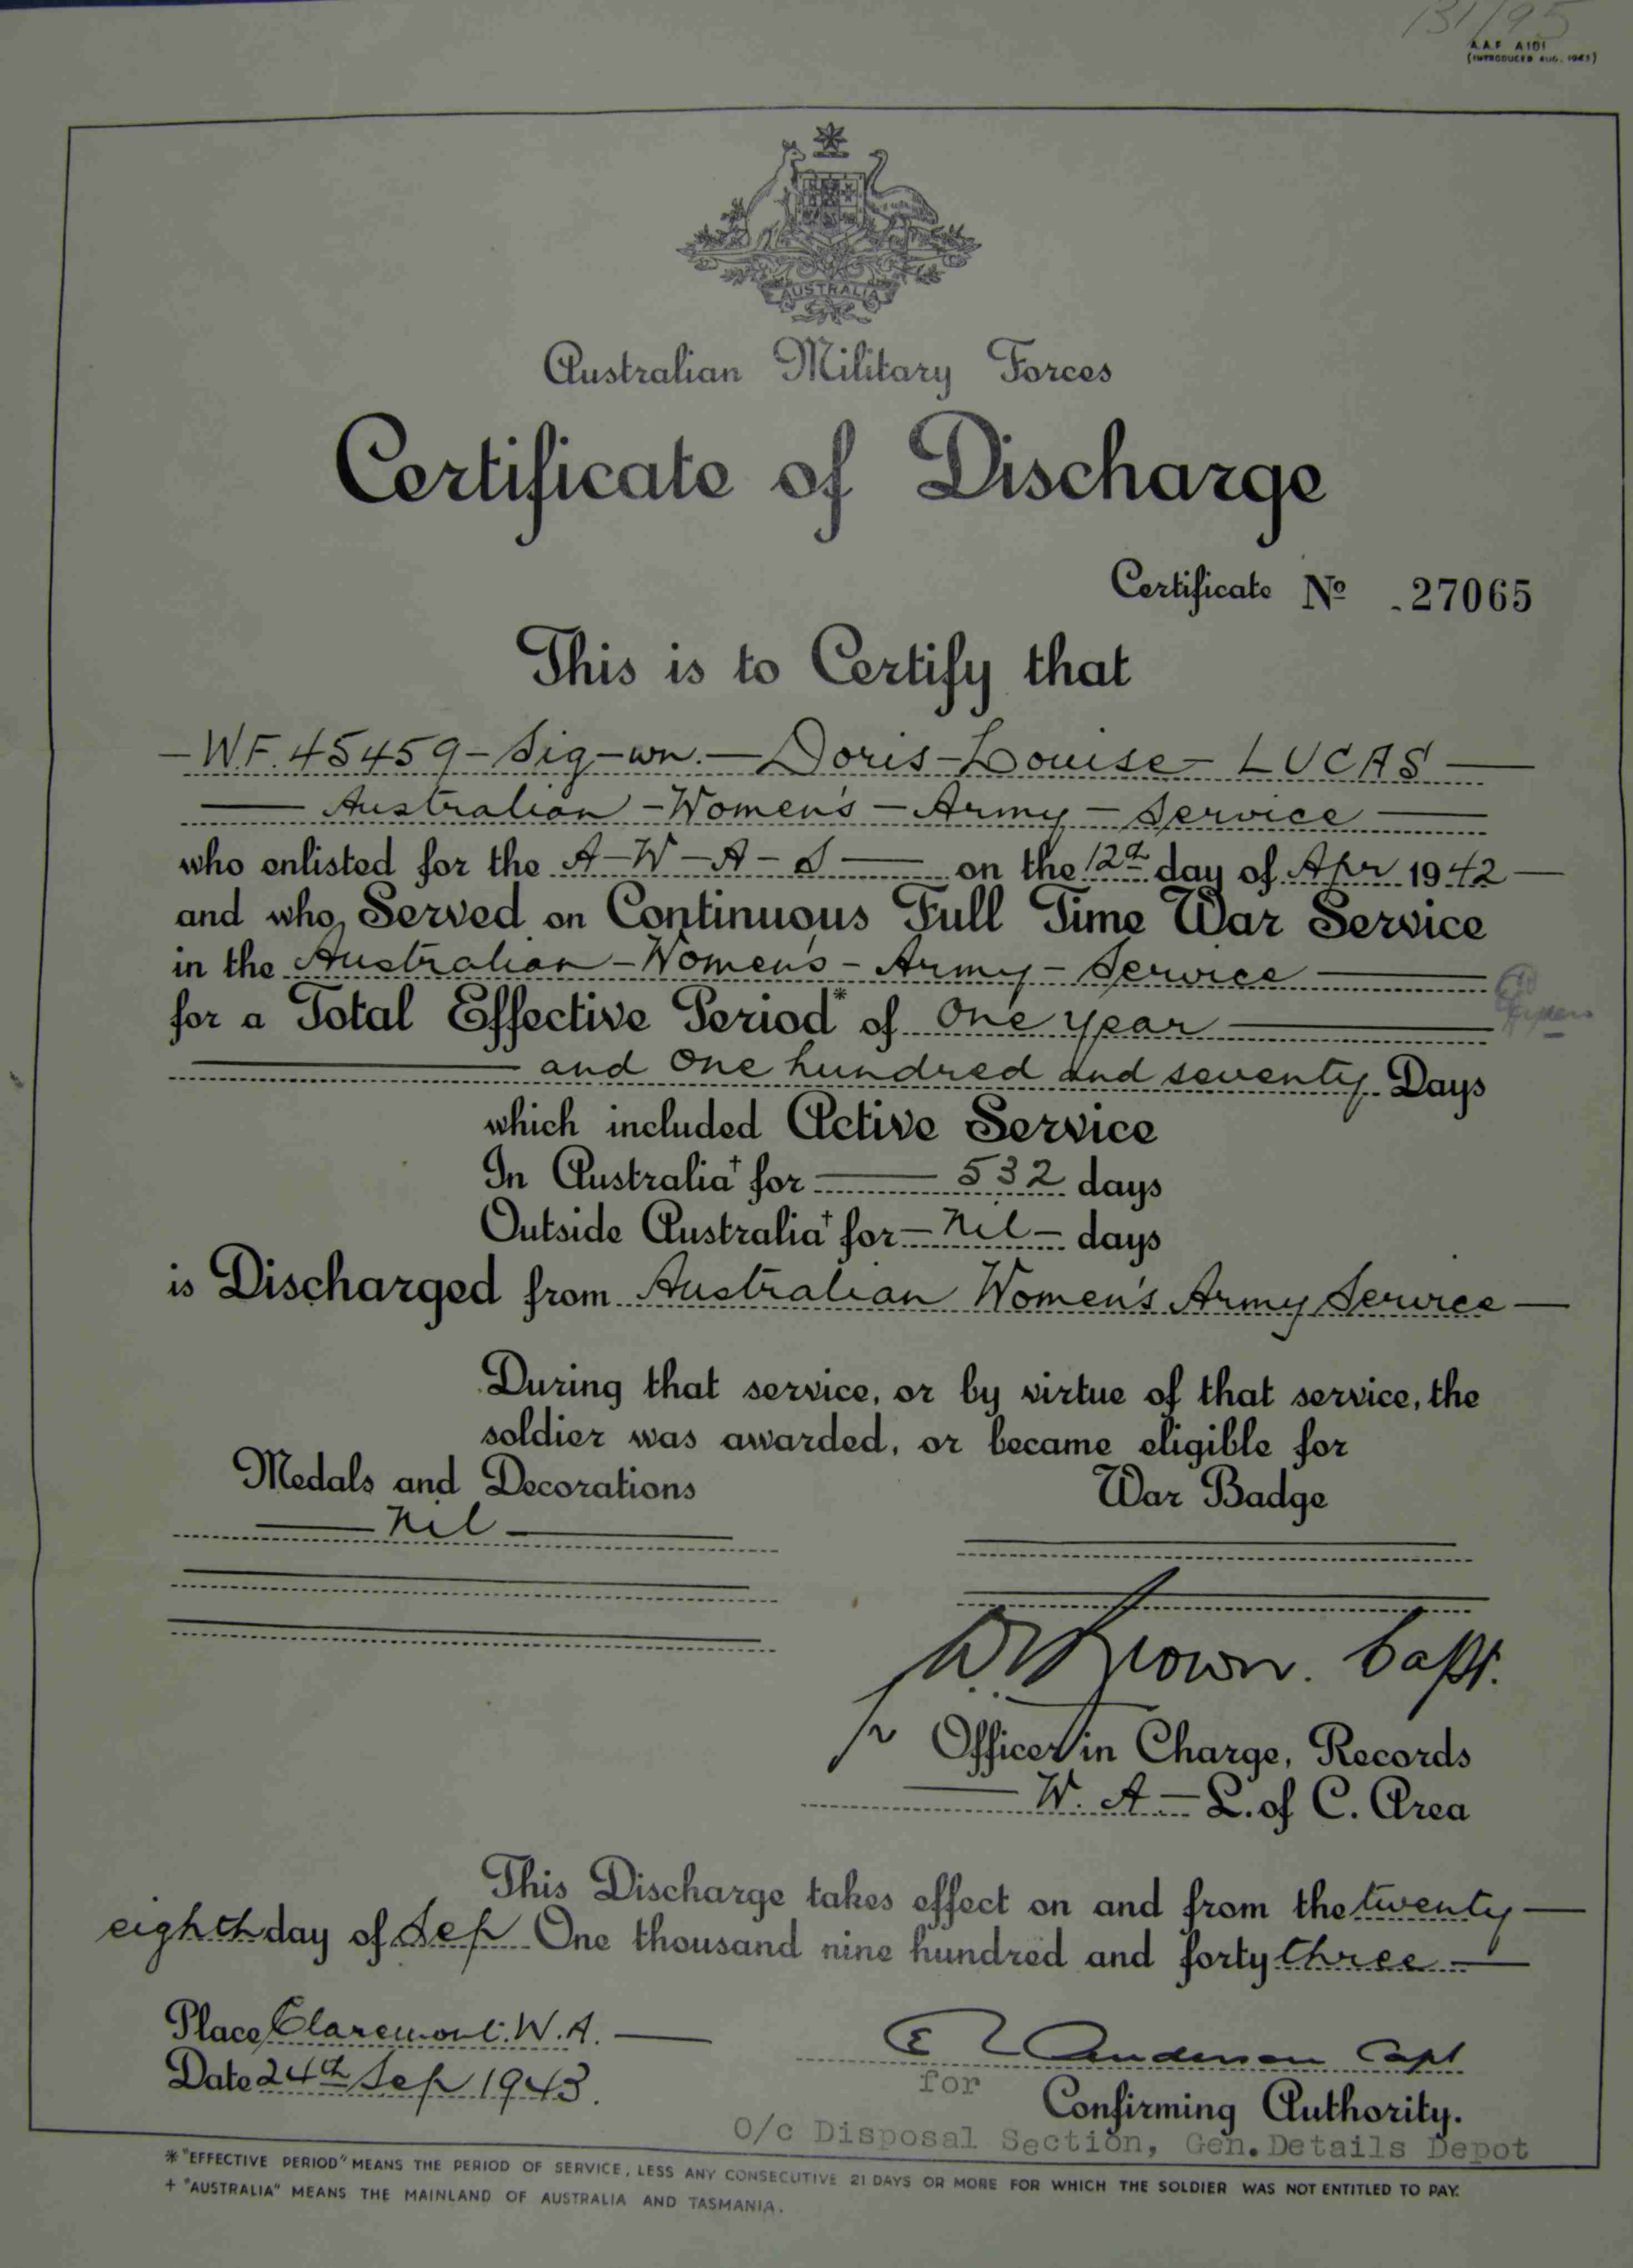 131/95
A.A.F A101
(INTRODUCED AUG. 1943)
AUSTRALIA
Australian Military Forces
Certificate of Discharge
Certificate No 27065
This is to Certify that
- W.F. 45459 - Sig-wn. - Doris - Louise - LUCAS -
- Australian - Women's - Army - Service -
who enlisted for the A-W-A-S - on the 12th day of Apr 1942 -
and who Served on Continuous Full Time War Service
in the Australian - Women's - Army - Service -
for a Total Effective Period* of One year -
- and One hundred and seventy Days
which included Active Service
In Australia† for - 532 days
Outside Australia† for - nil - days
is Discharged from Australian Women's Army Service -
During that service, or by virtue of that service, the
soldier was awarded, or became eligible for
Medals and Decorations War Badge
- nil -
Brown. Capt.
Officer in Charge, Records
- W. A - L. of C. Area
This Discharge takes effect on and from the twenty -
eighth day of Sep One thousand nine hundred and forty three -
Place Claremont. W.A. -
Date 24th Sep 1943.
Anderson Capt
for Confirming Authority.
O/c Disposal Section, Gen. Details Depot
* "EFFECTIVE PERIOD" MEANS THE PERIOD OF SERVICE, LESS ANY CONSECUTIVE 21 DAYS OR MORE FOR WHICH THE SOLDIER WAS NOT ENTITLED TO PAY.
+ "AUSTRALIA" MEANS THE MAINLAND OF AUSTRALIA AND TASMANIA.